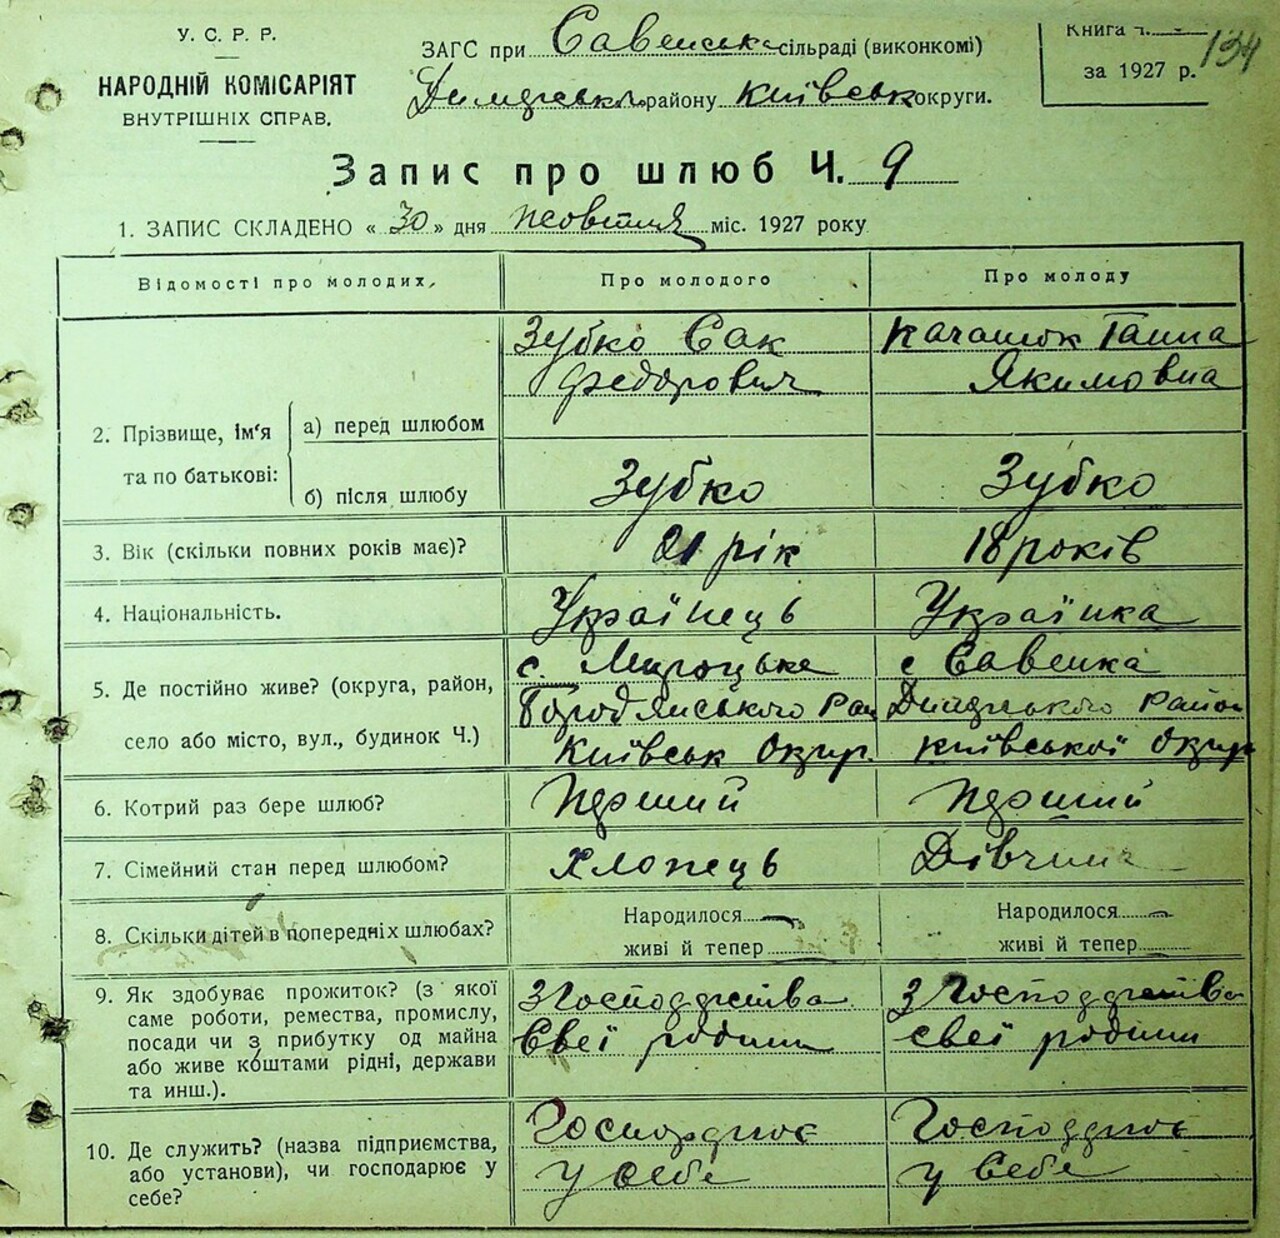 У. С. Р. Р.
НАРОДНІЙ КОМІСАРІЯТ
ВНУТРІШНІХ СПРАВ.
ЗАГС при Савенська сільраді (виконкомі)
району Київськ округи.
Книга ч.
за 1927 р.
134
Запис про шлюб Ч. 9
1. ЗАПИС СКЛАДЕНО « 30 » дня Жовтня міс. 1927 року
Відомості про молодих. Про молодого Про молоду
2. Прізвище, ім'я та по батькові:
а) перед шлюбом
Зубко Сак
Федорович
Ганна
Якимовна
б) після шлюбу Зубко Зубко
3. Вік (скільки повних років має)? 21 рік 18 років
4. Національність. Українець Українка
5. Де постійно живе? (округа, район,
село або місто, вул., будинок Ч.)
с. Мироцьке
Городянського Рай
Київськ Окру.
с Савенка
Район
Київської Окру
6. Котрий раз бере шлюб? Перший Перший
7. Сімейний стан перед шлюбом? Хлопець Дівчина
8. Скільки дітей в попередніх шлюбах?
Народилося —
живі й тепер
Народилося —
живі й тепер
9. Як здобуває прожиток? (з якої
саме роботи, ремества, промислу,
посади чи з прибутку од майна
або живе коштами рідні, держави
та инш.).
З Господарства
Свеї родини
З Господарства
свеї родини
10. Де служить? (назва підприємства,
або установи), чи господарює у
себе?
Господарює
у себе
Господарює
у себе